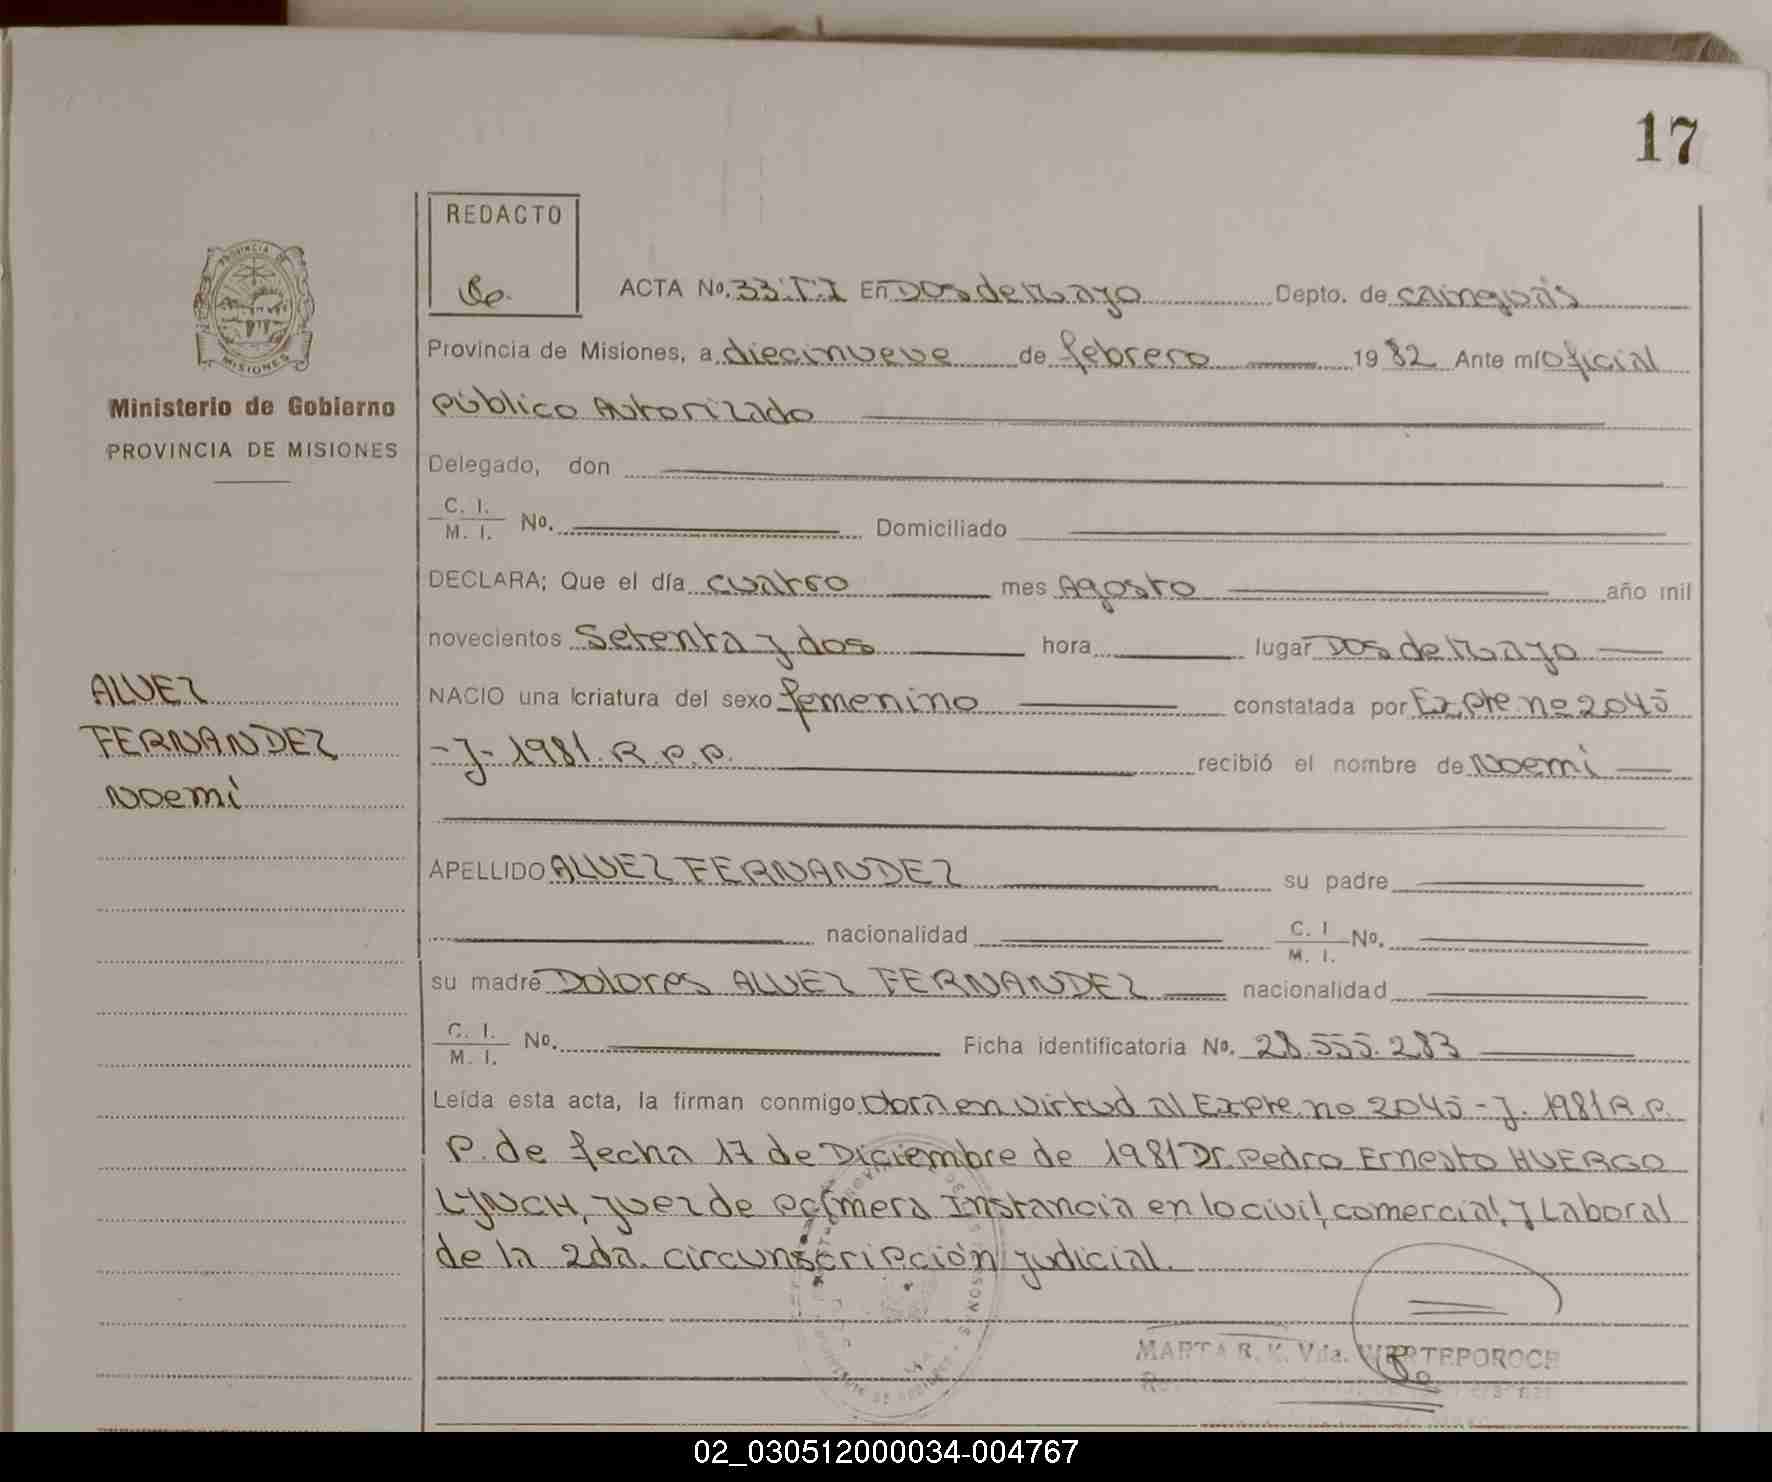 17
REDACTO
PROVINCIA DE
MISIONES
ACTA No. 33.T.I En DOS de Mayo Depto. de cainguás
Provincia de Misiones, a diecinueve de febrero 1982 Ante mí Oficial
Ministerio de Gobierno
público Autorizado
PROVINCIA DE MISIONES
Delegado, don
C. I.
M. I. No. Domiciliado
DECLARA; Que el día cuatro mes Agosto año mil
novecientos Setenta y dos hora lugar DOS de Mayo
ALVEZ
FERNANDEZ
Noemí
NACIO una criatura del sexo femenino constatada por Expte. no 2045
-J- 1981. R.P.P. recibió el nombre de Noemí
APELLIDO ALVEZ FERNANDEZ su padre
nacionalidad C. I. M. I. No.
su madre Dolores ALVEZ FERNANDEZ nacionalidad
C. I.
M. I. No. Ficha identificatoria No. 28.555.283
Leída esta acta, la firman conmigo en virtud al Expte. no 2045 - J. 1981 R.P.
P. de fecha 17 de Diciembre de 1981 Dr. Pedro Ernesto HUERGO
LYNCH, juez de Primera Instancia en lo civil, comercial, y Laboral
de la 2da. circunscripción judicial.
MARTA R. K. Vda.
02_030512000034-004767